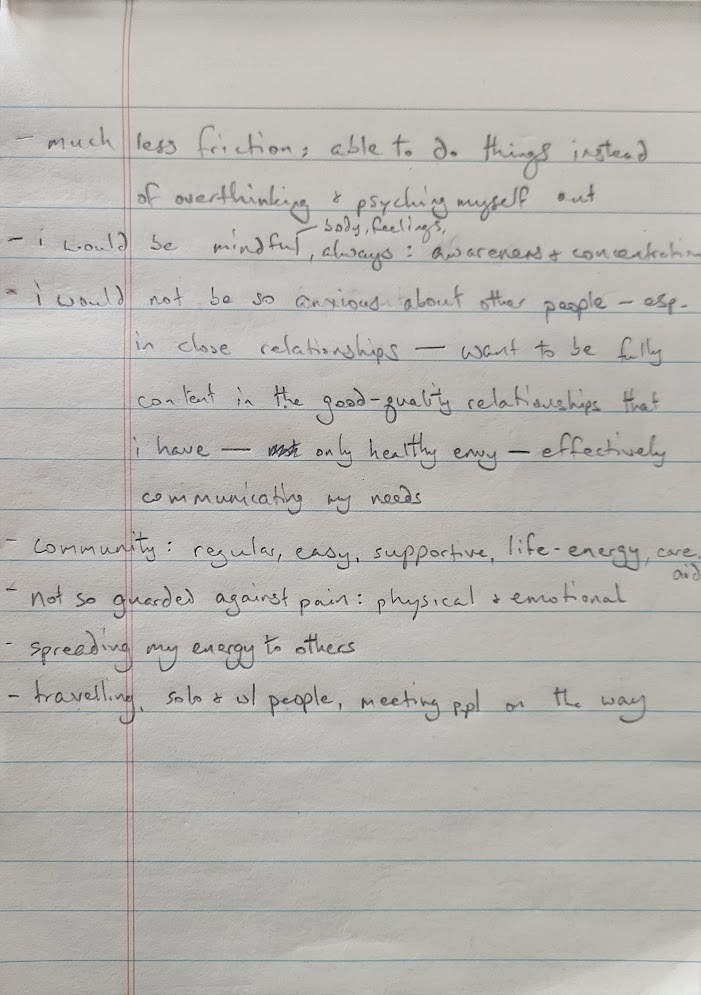 - much less friction; able to do things instead
of overthinking & psyching myself out
body, feelings,
- i would be mindful, always: awareness & concentration
- i would not be so anxious about other people - esp.
in close relationships - want to be fully
content in the good-quality relationships that
i have - only healthy envy - effectively
communicating my needs
- community: regular, easy, supportive, life-energy, care,
aid
- not so guarded against pain: physical & emotional
- spreading my energy to others
- travelling, solo & w/ people, meeting ppl on the way